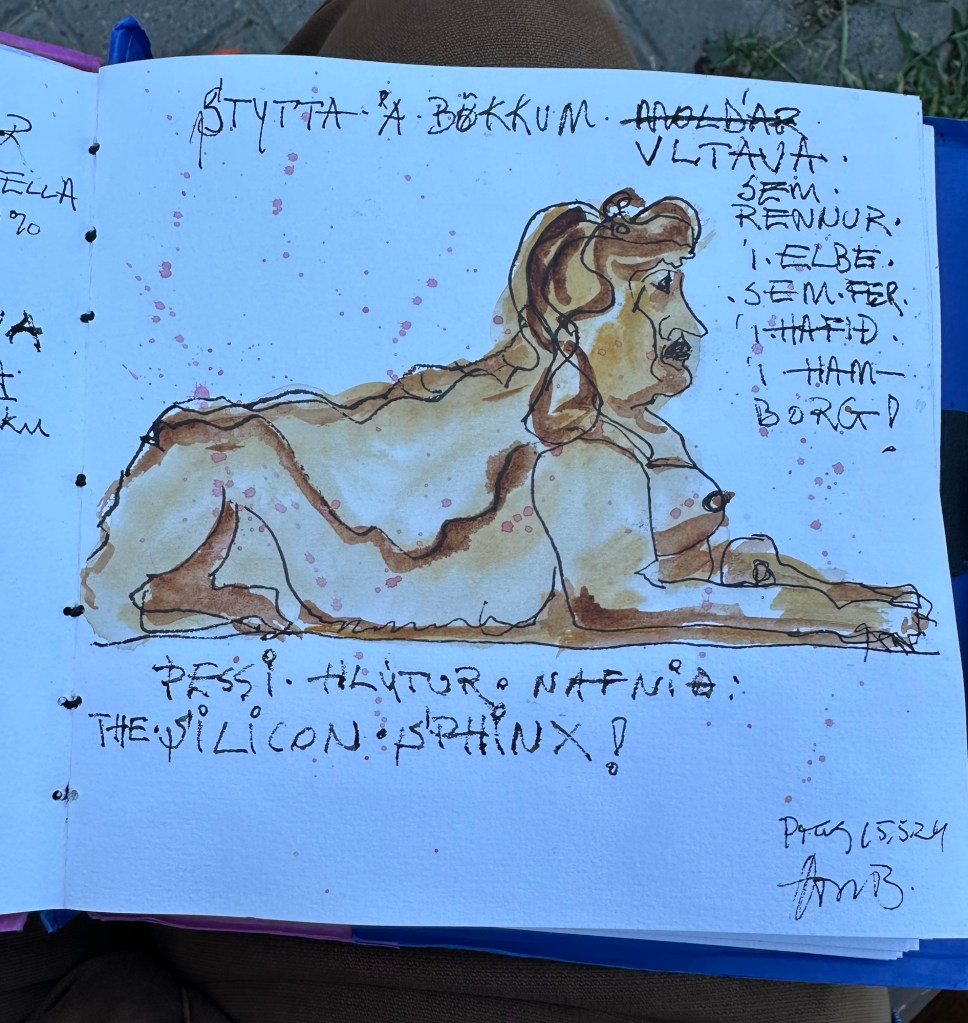 R
ELLA
%
A
KU
STYTTA Á BÖKKUM MOLDÁR
VLTAVA.
SEM.
RENNUR.
Í. ELBE.
.SEM.FER.
Í HAFIÐ.
Í HAM-
BORG!
ÞESSI. HLÝTUR. NAFNIÐ:
THE.SILICON.SPHINX!
Prag 15.5.24